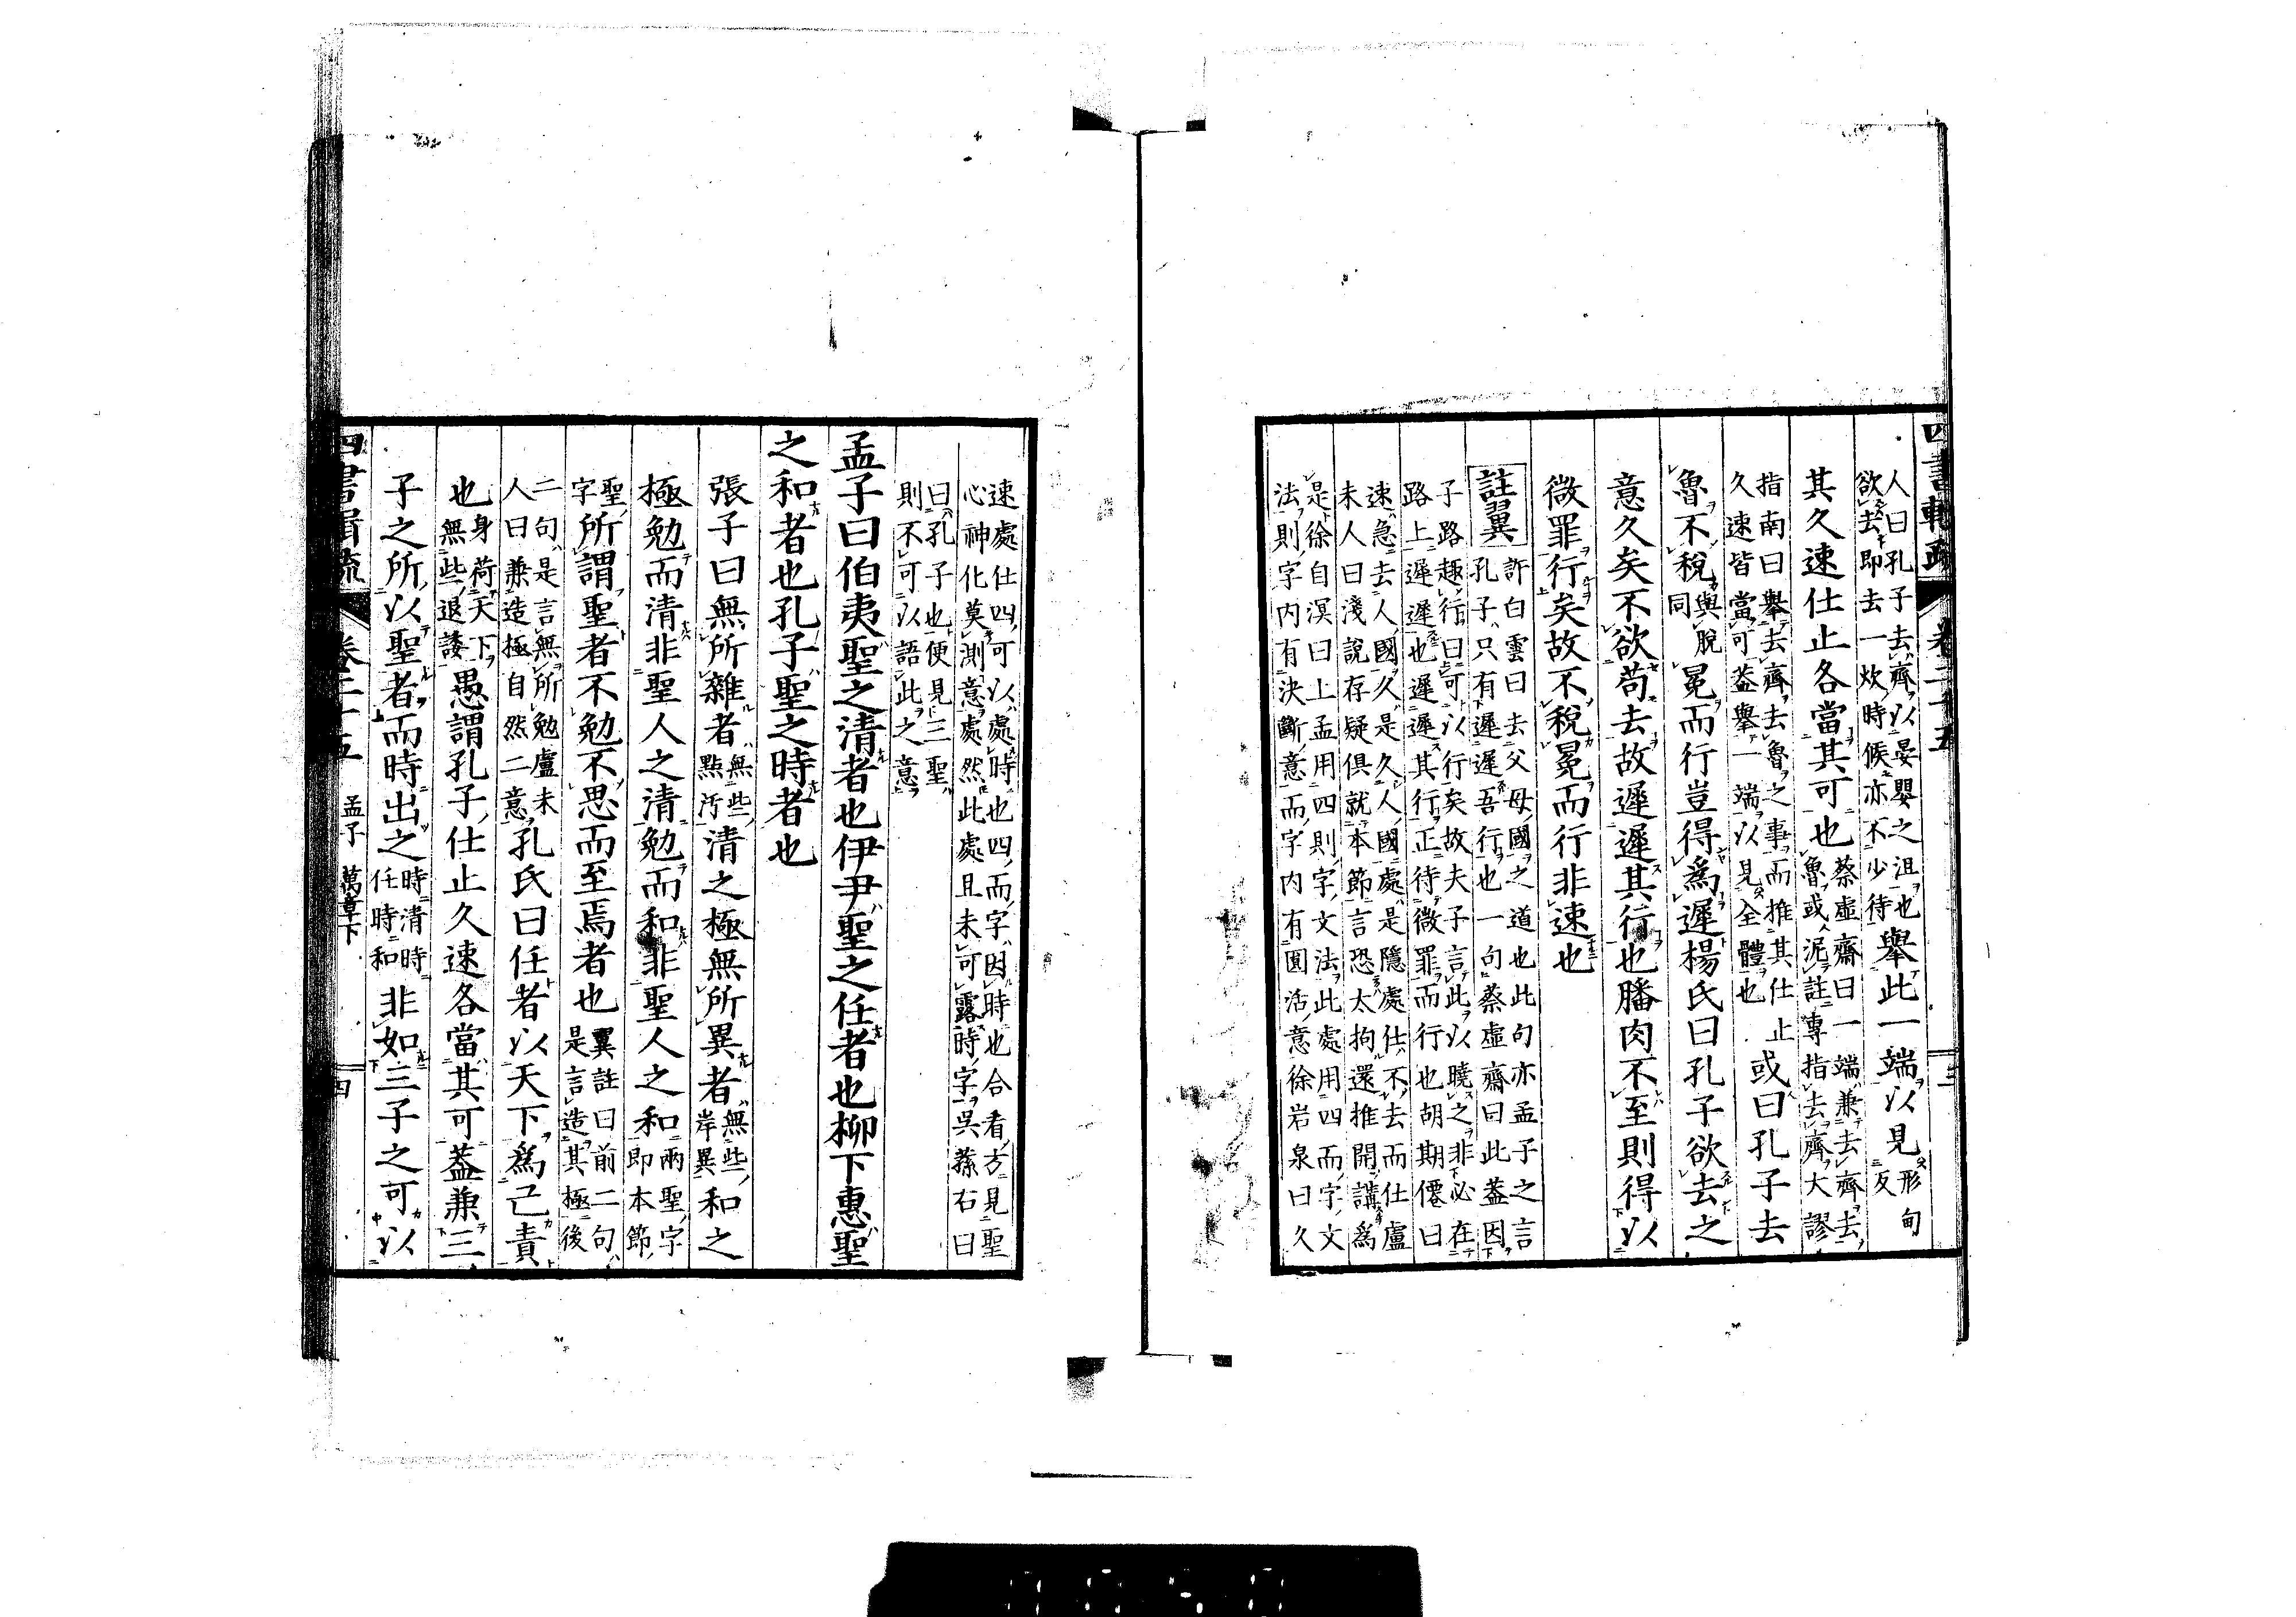 人曰孔子去齊以晏嬰之沮也
欲去即去一炊時候亦不少待
舉此一端以見
形甸
反
其久速仕止各當其可也
蔡虛齋曰一端兼去齊去
魯或泥註專指去齊大謬
指南曰舉去齊去魯之事而推其仕止
久速皆當可蓋舉一端以見全體也
或曰孔子去
魯不稅
與脫
同
冕而行豈得爲遲楊氏曰孔子欲去之
意久矣不欲苟去故遲遲其行也膰肉不至則得以
微罪行矣故不稅冕而行非速也
註翼
許白雲曰去父母國之道也此句亦孟子之言
孔子只有遲遲吾行也一句蔡虛齋曰此蓋因
子路趣行曰可以行矣故夫子言此以曉之非必在
路上遲遲也遲遲其行正待微罪而行也胡期僊曰
速急去人國久是久人國處是隱處仕不去而仕盧
未人曰淺說存疑俱就本節言恐太拘還推開講爲
是徐自溟曰上孟用四則字文法此處用四而字文
法則字内有決斷意而字内有圓活意徐岩泉曰久
速處仕四可以處時也四而字因時也合看方見聖
心神化莫測意處然此處且未可露時字吳蓀右曰
曰孔子也便見三聖
則不可以語此之意
孟子曰伯夷聖之清者也伊尹聖之任者也柳下惠聖
之和者也孔子聖之時者也
張子曰無所雜者
無些
點汚
清之極無所異者
無些
岸異
和之
極勉而清非聖人之清勉而和非聖人之和
兩聖字
即本節
聖
字
所謂聖者不勉不思而至焉者也
翼註曰前二句
是言造其極後
二句是言無所勉盧未
人曰兼造極自然二意
孔氏曰任者以天下爲己責
也
身荷天下
無些退諉
愚謂孔子仕止久速各當其可蓋兼三
子之所以聖者而時出之
時清時
任時和
非如三子之可以
孟子 萬章下
四